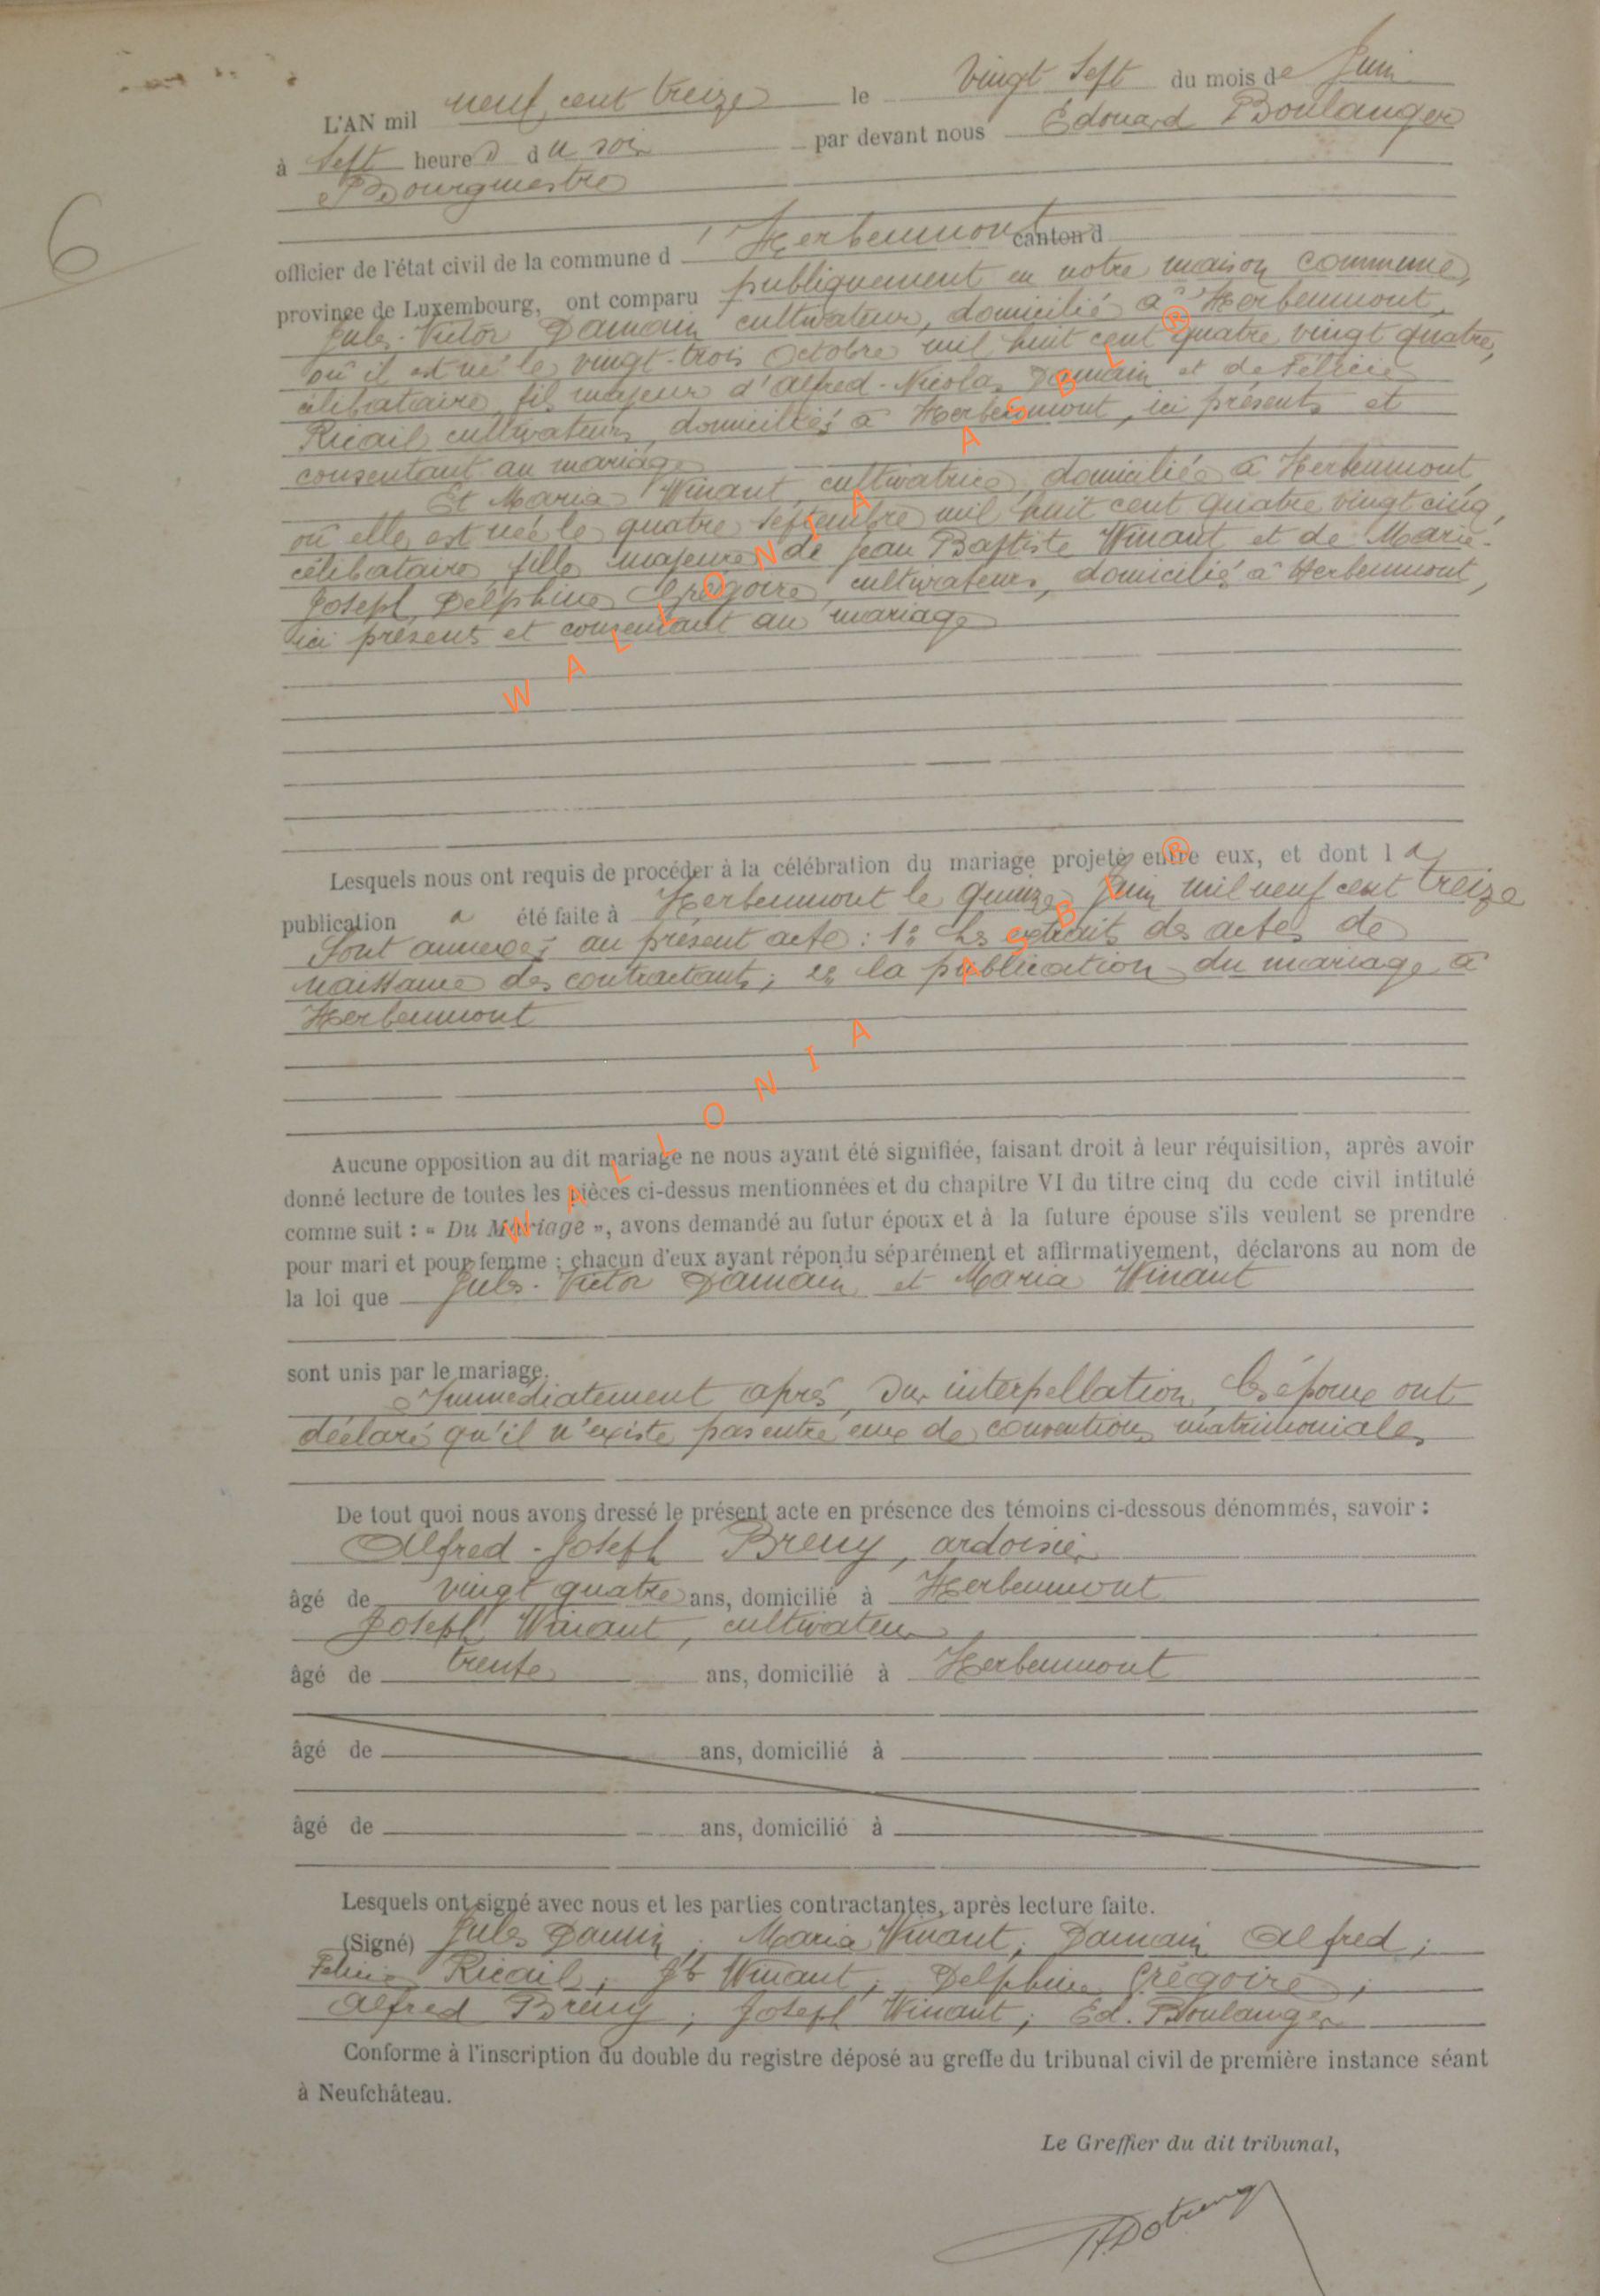 L'AN mil neuf cent treize le vingt sept du mois de Juin
à sept heures du soir par devant nous Edouard Boulanger
Bourgmestre
6
officier de l'état civil de la commune d'Herbeumont canton d
province de Luxembourg, ont comparu publiquement en notre maison commune,
Jules-Victor Damain cultivateur, domicilié à Herbeumont,
où il est né le vingt-trois Octobre mil huit cent quatre vingt quatre,
célibataire, fils majeur d'Alfred-Nicolas Damain et de Félicie
Ricail, cultivateurs, domiciliés à Herbeumont, ici présents et
consentant au mariage
Et Maria Winant, cultivatrice, domiciliée à Herbeumont,
où elle est née le quatre Septembre mil huit cent quatre vingt cinq,
célibataire, fille majeure de Jean Baptiste Winant et de Marie-
Joseph Delphine Grégoire, cultivateurs, domiciliés à Herbeumont,
ici présents et consentant au mariage
WALLONIA ASBL ®
Lesquels nous ont requis de procéder à la célébration du mariage projeté entre eux, et dont la
publication a été faite à Herbeumont le quinze Juin mil neuf cent treize
Sont annexés au présent acte : 1° Les extraits des actes de
naissance des contractants ; 2° la publication du mariage à
Herbeumont
WALLONIA ASBL ®
Aucune opposition au dit mariage ne nous ayant été signifiée, faisant droit à leur réquisition, après avoir
donné lecture de toutes les pièces ci-dessus mentionnées et du chapitre VI du titre cinq du code civil intitulé
comme suit : « Du Mariage », avons demandé au futur époux et à la future épouse s'ils veulent se prendre
pour mari et pour femme ; chacun d'eux ayant répondu séparément et affirmativement, déclarons au nom de
la loi que Jules-Victor Damain et Maria Winant
sont unis par le mariage.
Immédiatement après, sur interpellation, les époux ont
déclaré qu'il n'existe pas entre eux de conventions matrimoniales
De tout quoi nous avons dressé le présent acte en présence des témoins ci-dessous dénommés, savoir :
Alfred-Joseph Breny, ardoisier
âgé de vingt quatre ans, domicilié à Herbeumont
Joseph Winant, cultivateur
âgé de trente ans, domicilié à Herbeumont
âgé de ans, domicilié à
âgé de ans, domicilié à
Lesquels ont signé avec nous et les parties contractantes, après lecture faite.
(Signé) Jules Damin ; Maria Winant ; Damain Alfred ;
Félicie Ricail ; Jb Winant ; Delphine Grégoire ;
Alfred Brény ; Joseph Winant ; Ed. Boulanger
Conforme à l'inscription du double du registre déposé au greffe du tribunal civil de première instance séant
à Neufchâteau.
Le Greffier du dit tribunal,